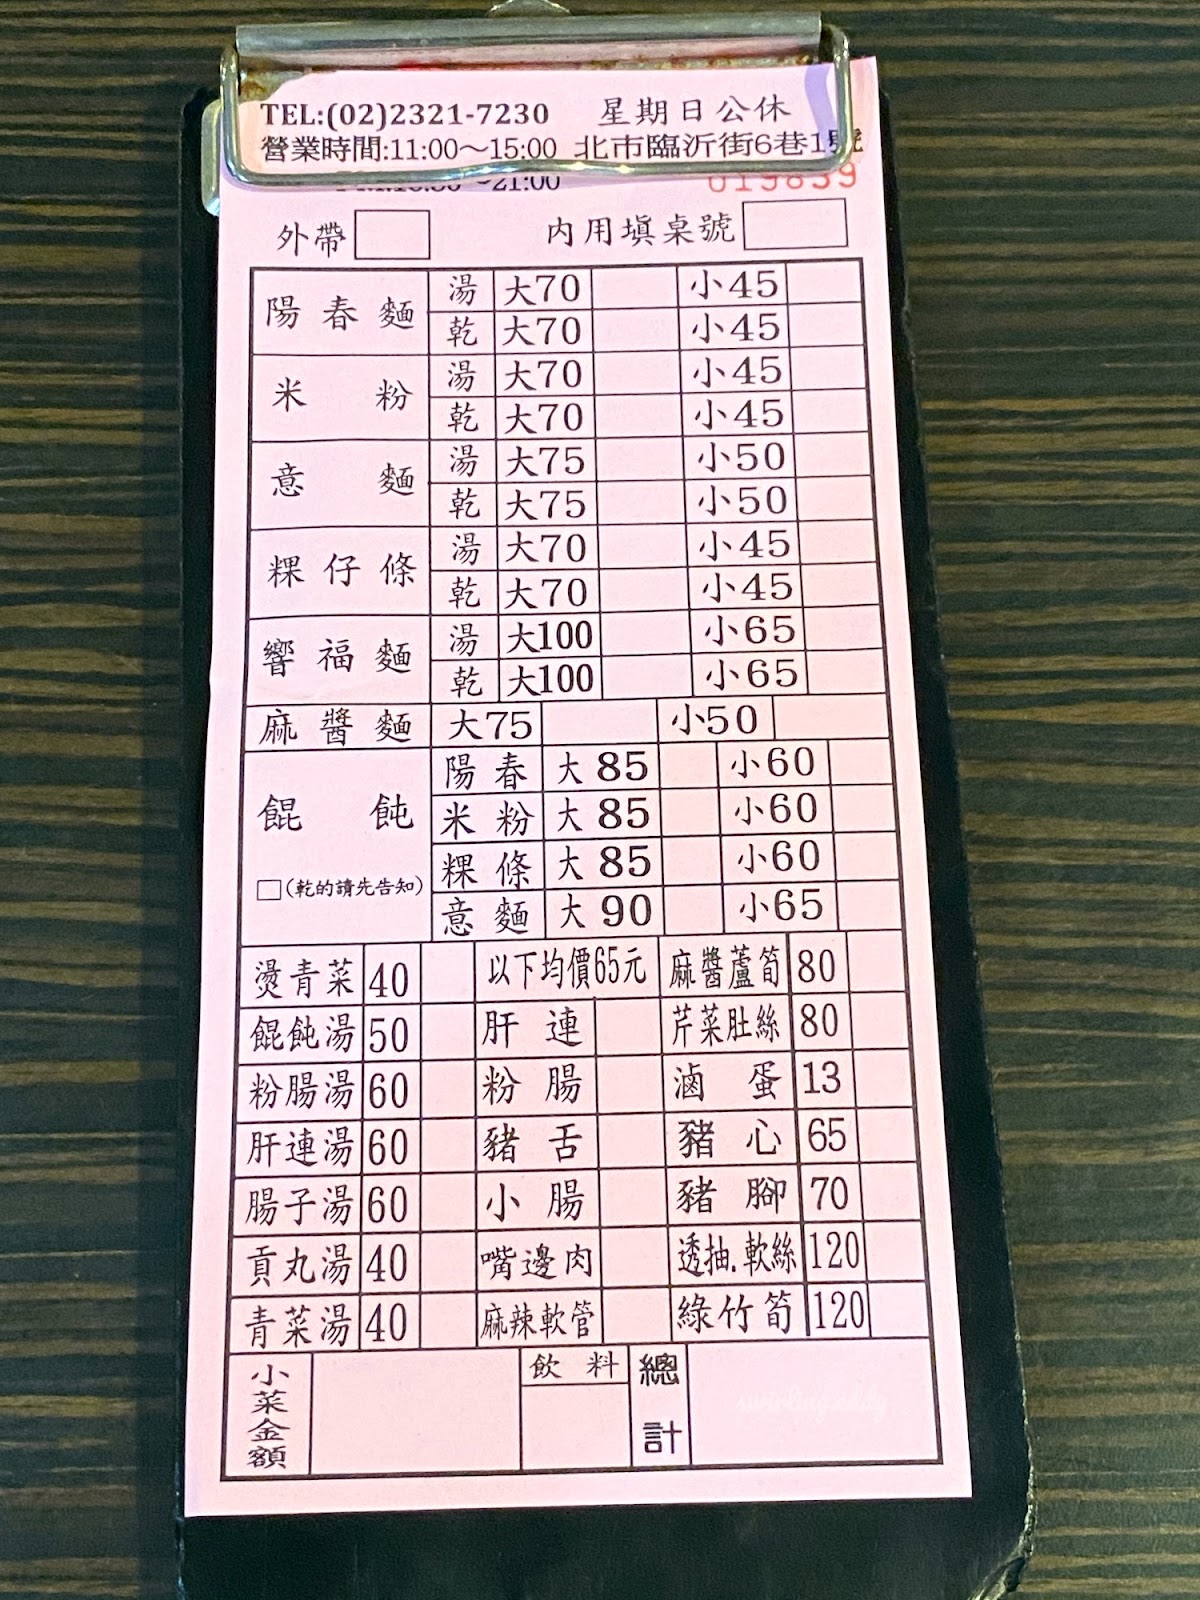 TEL:(02)2321-7230 星期日公休
營業時間:11:00～15:00 北市臨沂街6巷1號
～21:00 019839
外帶 內用填桌號
陽春麵 湯 大70 小45
乾 大70 小45
米粉 湯 大70 小45
乾 大70 小45
意麵 湯 大75 小50
乾 大75 小50
粿仔條 湯 大70 小45
乾 大70 小45
響福麵 湯 大100 小65
乾 大100 小65
麻醬麵 大75 小50
餛飩 陽春 大85 小60
米粉 大85 小60
□(乾的請先告知) 粿條 大85 小60
意麵 大90 小65
燙青菜 40 以下均價65元 麻醬蘆筍 80
餛飩湯 50 肝連 芹菜肚絲 80
粉腸湯 60 粉腸 滷蛋 13
肝連湯 60 豬舌 豬心 65
腸子湯 60 小腸 豬腳 70
貢丸湯 40 嘴邊肉 透抽.軟絲 120
青菜湯 40 麻辣軟管 綠竹筍 120
小菜金額 飲料 總計